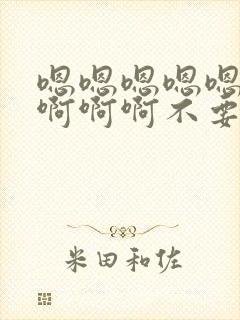 嗯嗯嗯嗯嗯
啊啊啊不要
米田和佐